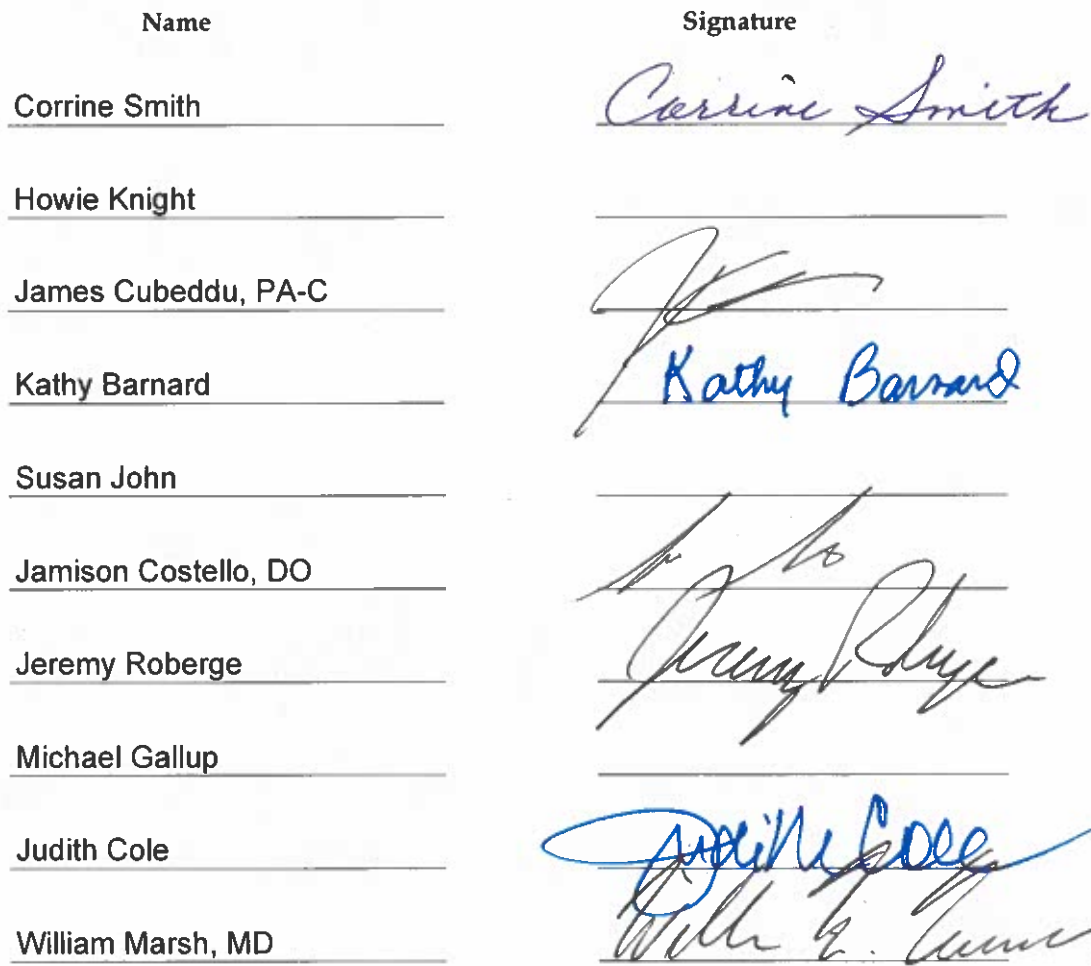 Name Signature
Corrine Smith Corrine Smith
Howie Knight
James Cubeddu, PA-C
Kathy Barnard Kathy Barnard
Susan John
Jamison Costello, DO
Jeremy Roberge Jeremy Roberge
Michael Gallup
Judith Cole Judith Cole
William Marsh, MD